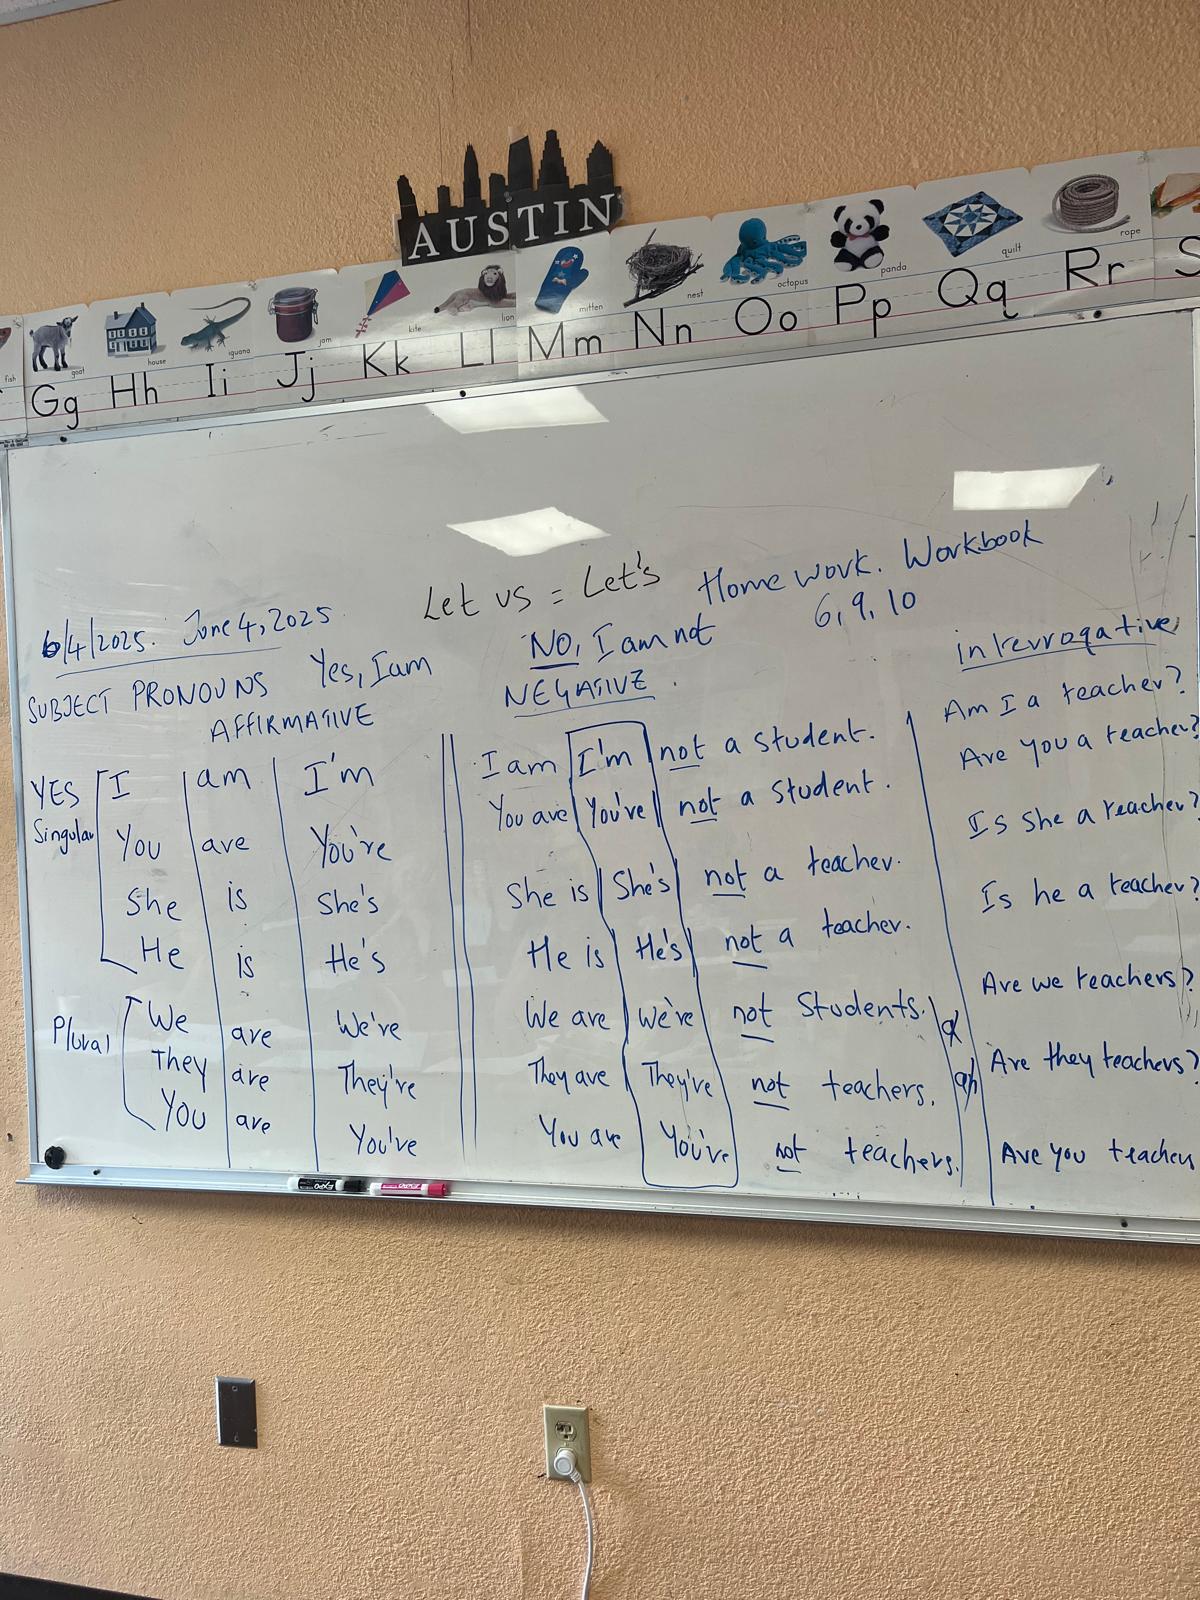 AUSTIN
fish
goat
Gg
house
Hh
iguana
Ii
jam
Jj
kite
Kk
lion
Ll
mitten
Mm
nest
Nn
octopus
Oo
panda
Pp
quilt
Qq
rope
Rr
S
Let us = Let's
Home work. Workbook
6, 9, 10
6/4/2025. June 4, 2025
SUBJECT PRONOUNS Yes, I am
AFFIRMATIVE
YES
Singular
I am I'm
You are You're
She is She's
He is He's
Plural
We are We're
They are They're
You are You're
NO, I am not
NEGATIVE.
I am I'm not a student.
You are You're not a student.
She is She's not a teacher.
He is He's not a teacher.
We are We're not Students. a
They are They're not teachers. an
You are You're not teachers.
interrogative
Am I a teacher?
Are you a teacher?
Is she a teacher?
Is he a teacher?
Are we teachers?
Are they teachers?
Are you teachers
EXPO
EXPO